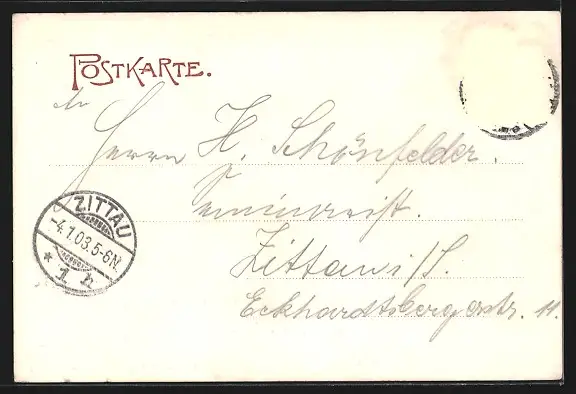 POSTKARTE.
An
Herrn H. Schönfelder.
Seminarist.
Zittau i/S.
Eckhardtsbergerstr. 11.
ZITTAU
-4.1.03.5-6N.
* 1 h